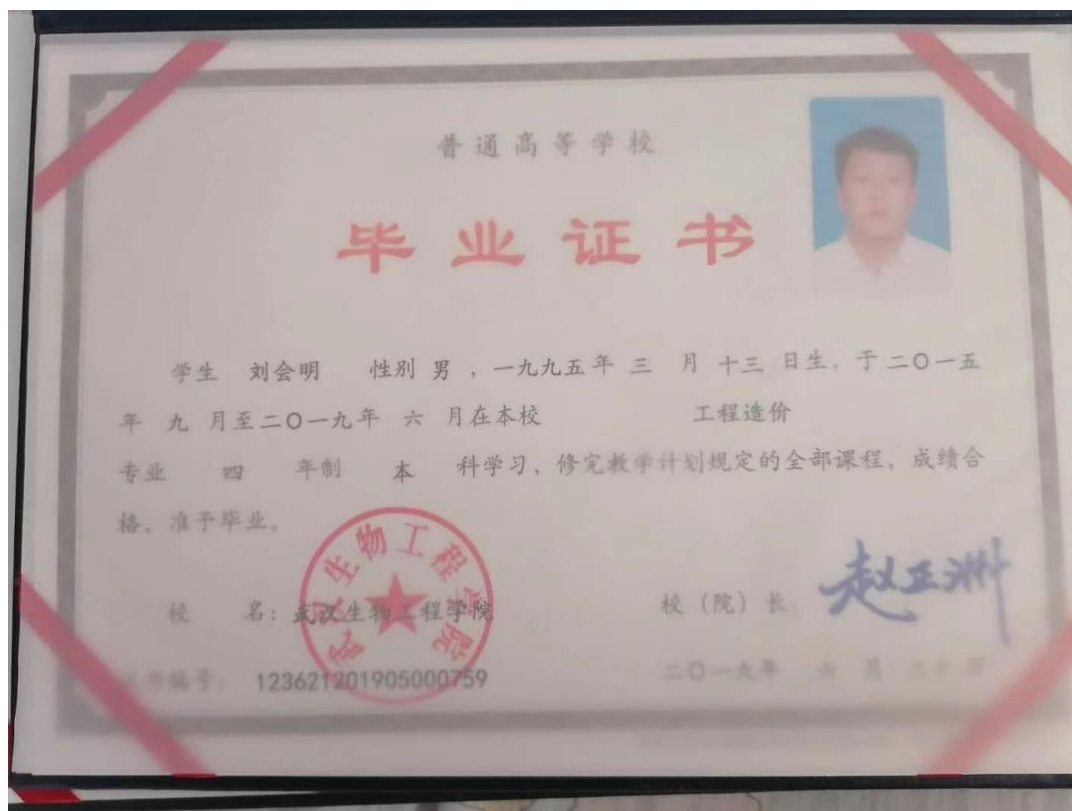 普通高等学校
毕业证书
学生 刘会明 性别 男 ，一九九五年 三 月 十三 日生，于二〇一五
年 九 月至二〇一九年 六 月在本校 工程造价
专业 四 年制 本 科学习，修完教学计划规定的全部课程，成绩合
格，准予毕业。
武汉生物工程学院
校 名：武汉生物工程学院 校（院）长： 赵正洲
编号： 123621201905000759 二〇一九年 六 月